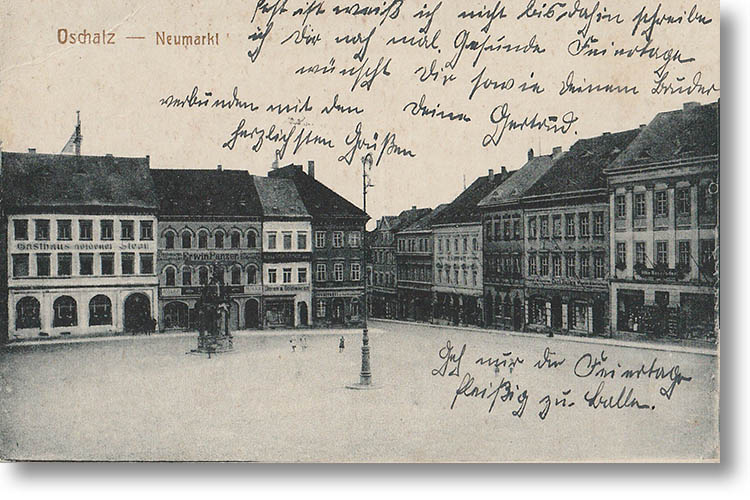 Oschatz — Neumarkt
Fest ist weiß ich nicht bis dahin schreibe
ich Dir noch mal. Gesunde Feiertage
wünscht Dir sowie Deinem Bruder
verbunden mit den
herzlichsten Grüßen
Deine
Gertrud.
Gasthaus goldner Stern
Erwin Panzer
Geh nur die Feiertage
fleißig zu Balle.